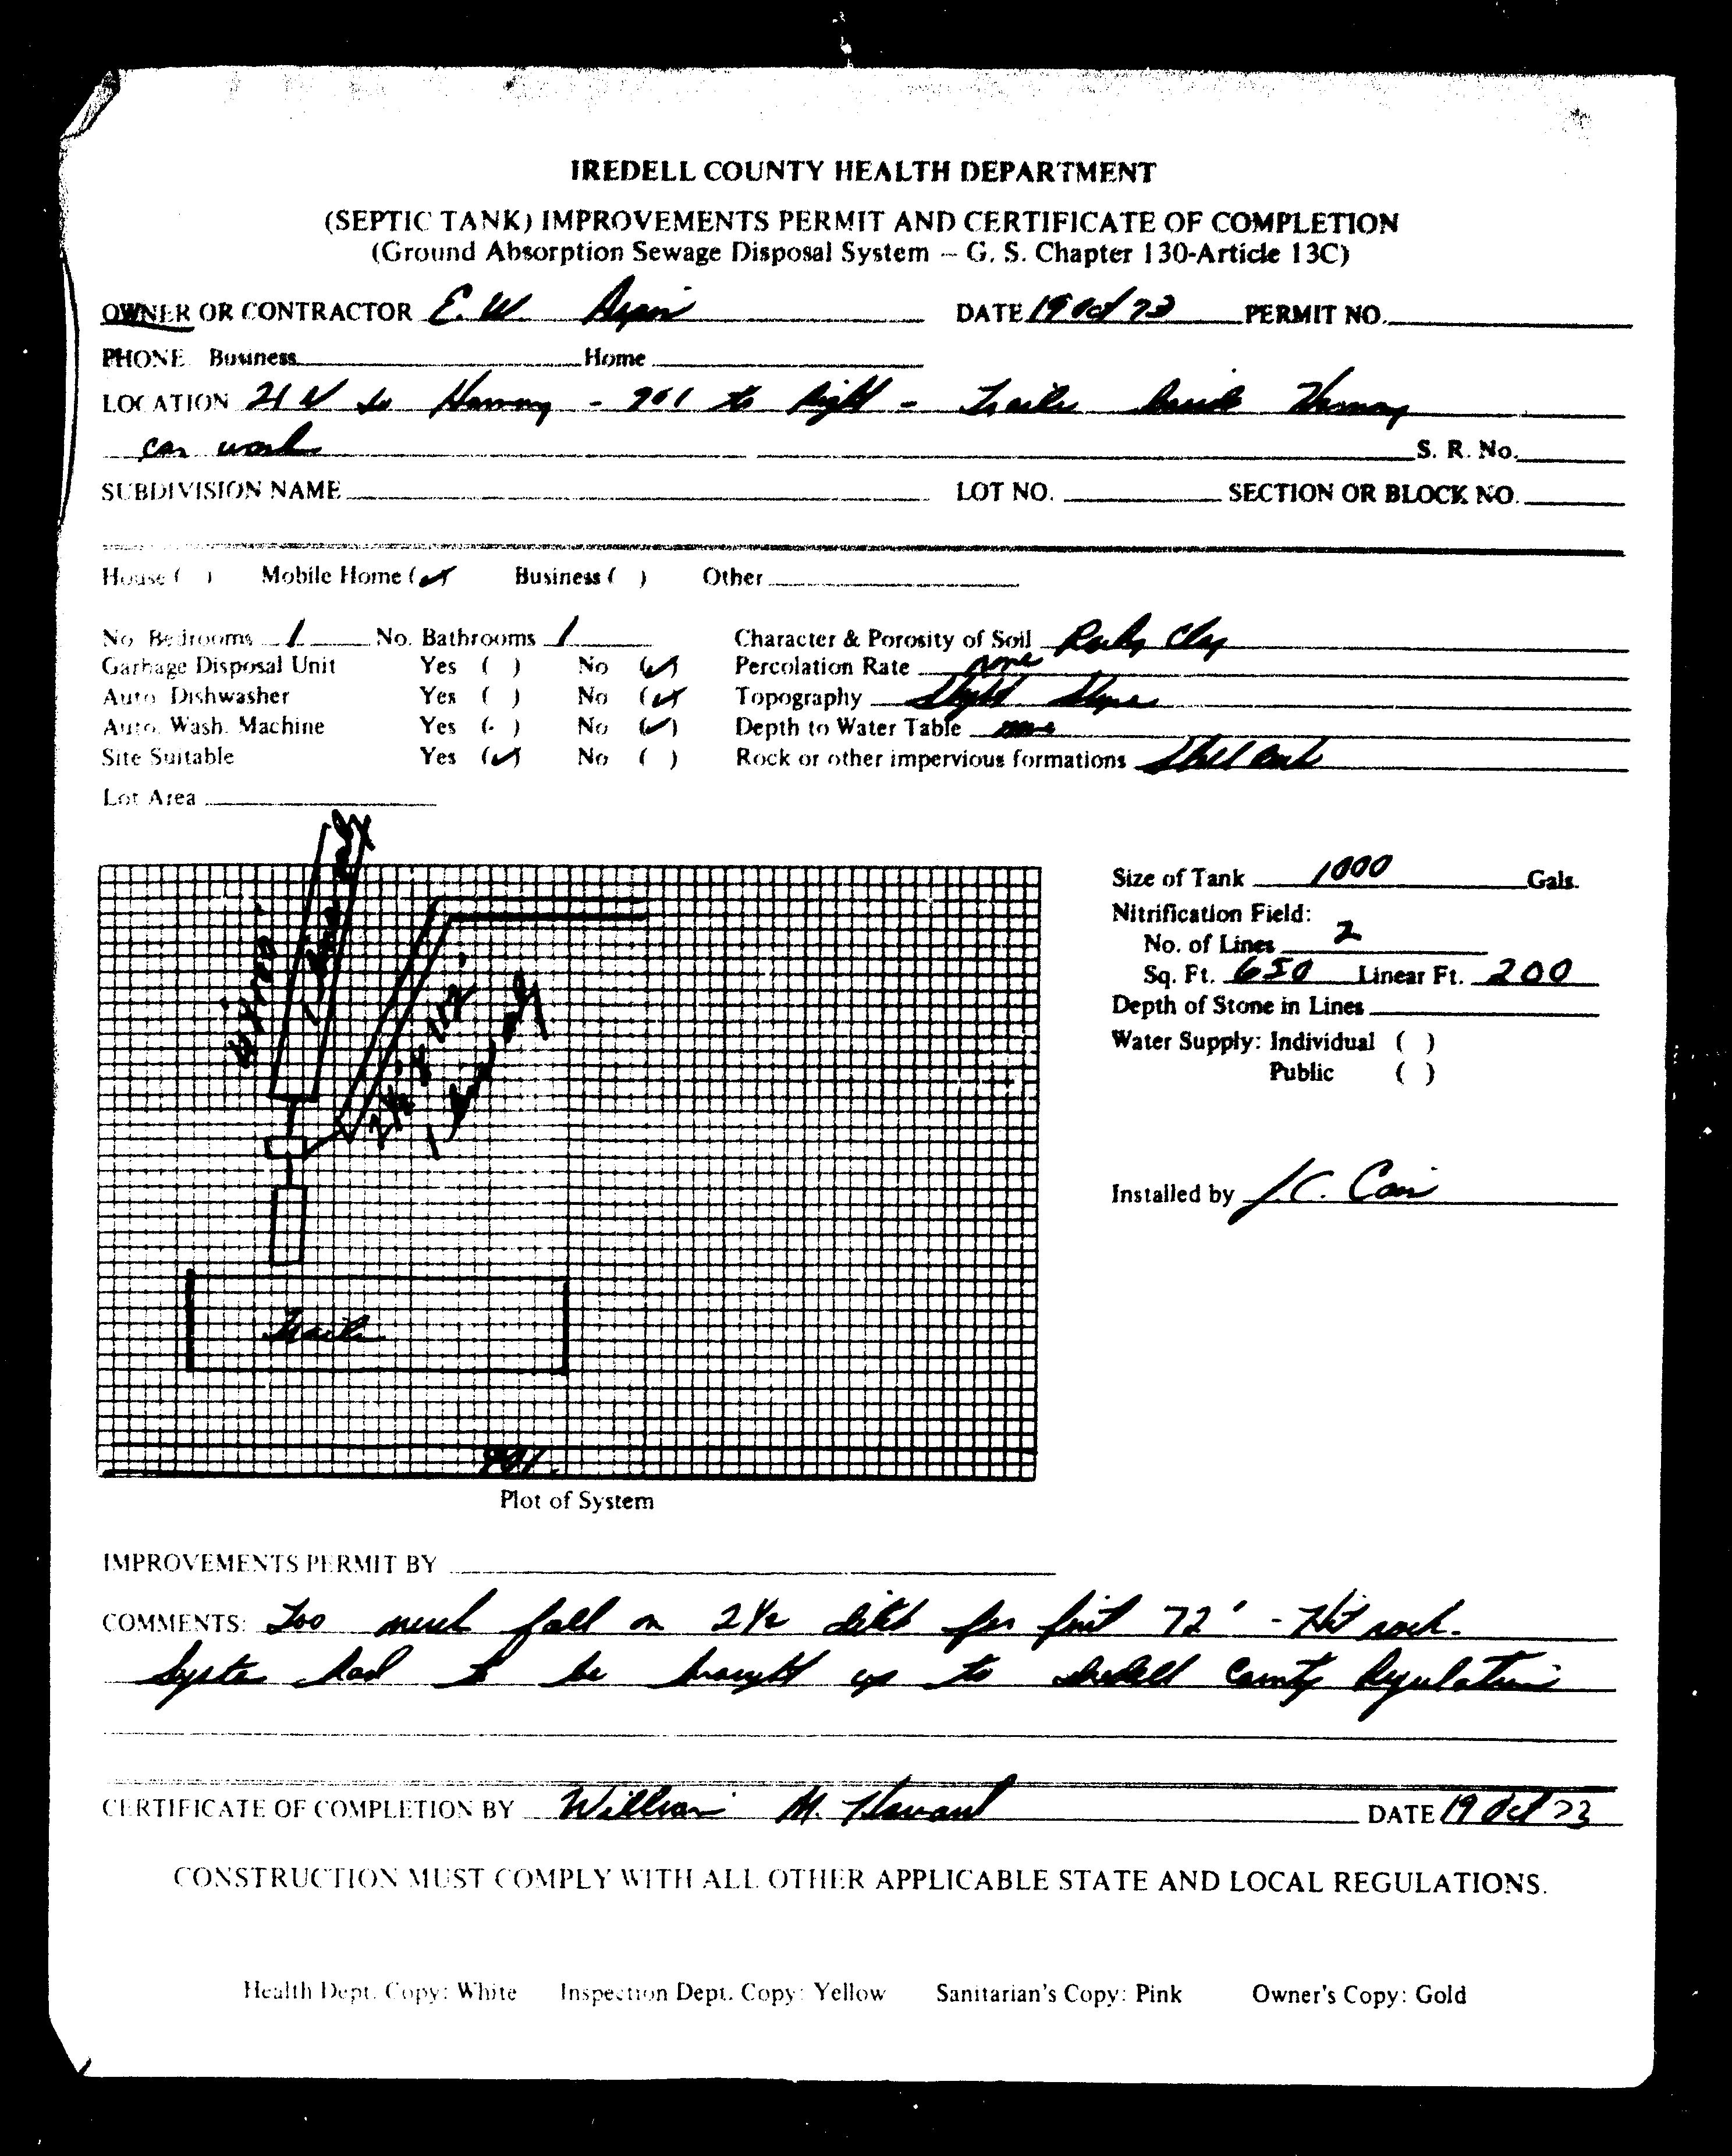 IREDELL COUNTY HEALTH DEPARTMENT
(SEPTIC TANK) IMPROVEMENTS PERMIT AND CERTIFICATE OF COMPLETION
(Ground Absorption Sewage Disposal System – G. S. Chapter 130-Article 13C)
OWNER OR CONTRACTOR E. W. DATE 19 Oct 73 PERMIT NO.
PHONE Business Home
LOCATION 21 N to Harmony - 901 to Right - Trailer beside Harmony
car wash S. R. No.
SUBDIVISION NAME LOT NO. SECTION OR BLOCK NO.
House ( ) Mobile Home (✓) Business ( ) Other
No. Bedrooms 1 No. Bathrooms 1 Character & Porosity of Soil Rocky Clay
Garbage Disposal Unit Yes ( ) No (✓) Percolation Rate none
Auto. Dishwasher Yes ( ) No (✓) Topography Slight Slope
Auto. Wash. Machine Yes ( ) No (✓) Depth to Water Table none
Site Suitable Yes (✓) No ( ) Rock or other impervious formations Shell Rock
Lot Area
Size of Tank 1000 Gals.
Nitrification Field:
No. of Lines 2
Sq. Ft. 650 Linear Ft. 200
Depth of Stone in Lines
Water Supply: Individual ( )
Public ( )
Installed by J.C. Cain
Trailer
901
Plot of System
IMPROVEMENTS PERMIT BY
COMMENTS: Too much fall on 2½ ditch for first 72' - Hit rock.
System had to be brought up to Iredell County Regulations
CERTIFICATE OF COMPLETION BY William M. DATE 19 Oct 73
CONSTRUCTION MUST COMPLY WITH ALL OTHER APPLICABLE STATE AND LOCAL REGULATIONS.
Health Dept. Copy: White Inspection Dept. Copy: Yellow Sanitarian's Copy: Pink Owner's Copy: Gold